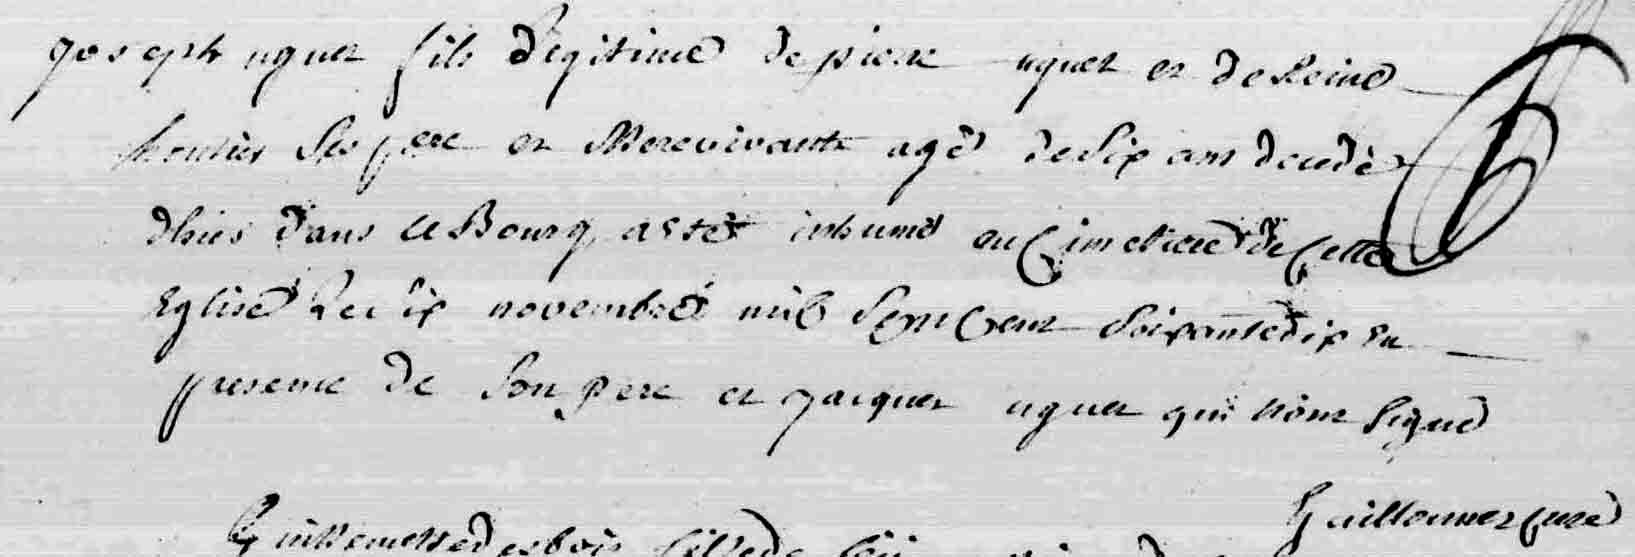 joseph uguet fils légitime de pierre uguet et de Reine
ses pere et Mere vivants agé de six ans decedé
d'hier dans le Bourg, a esté inhumé au Cimetiere de cette
Eglise le six novembre mil sept cent soixante dix en
presence de son pere et jacques uguet qui n'ont signé
curé
fille de